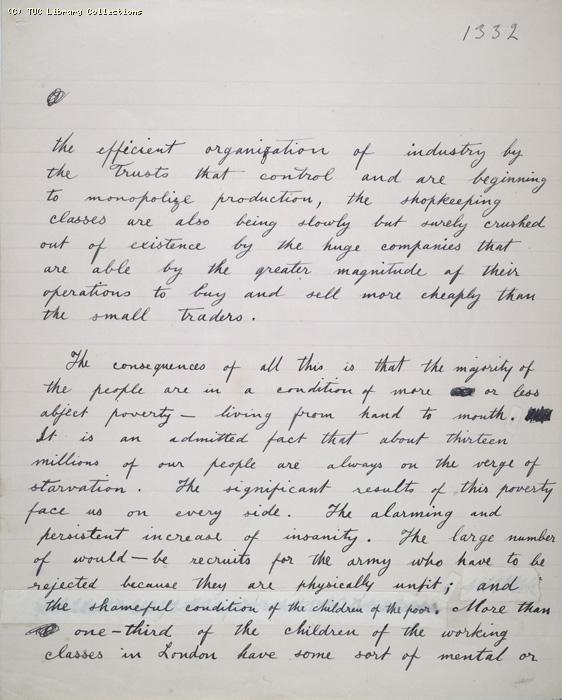 (C) TUC Library Collections
1332
the efficient organization of industry by
the Trusts that control and are beginning
to monopolize production, the shopkeeping
classes are also being slowly but surely crushed
out of existence by the huge companies that
are able by the greater magnitude of their
operations to buy and sell more cheaply than
the small traders.
The consequences of all this is that the majority of
the people are in a condition of more or less
abject poverty — living from hand to mouth.
It is an admitted fact that about thirteen
millions of our people are always on the verge of
starvation. The significant results of this poverty
face us on every side. The alarming and
persistent increase of insanity. The large number
of would-be recruits for the army who have to be
rejected because they are physically unfit; and
the shameful condition of the children of the poor. More than
one-third of the children of the working
classes in London have some sort of mental or